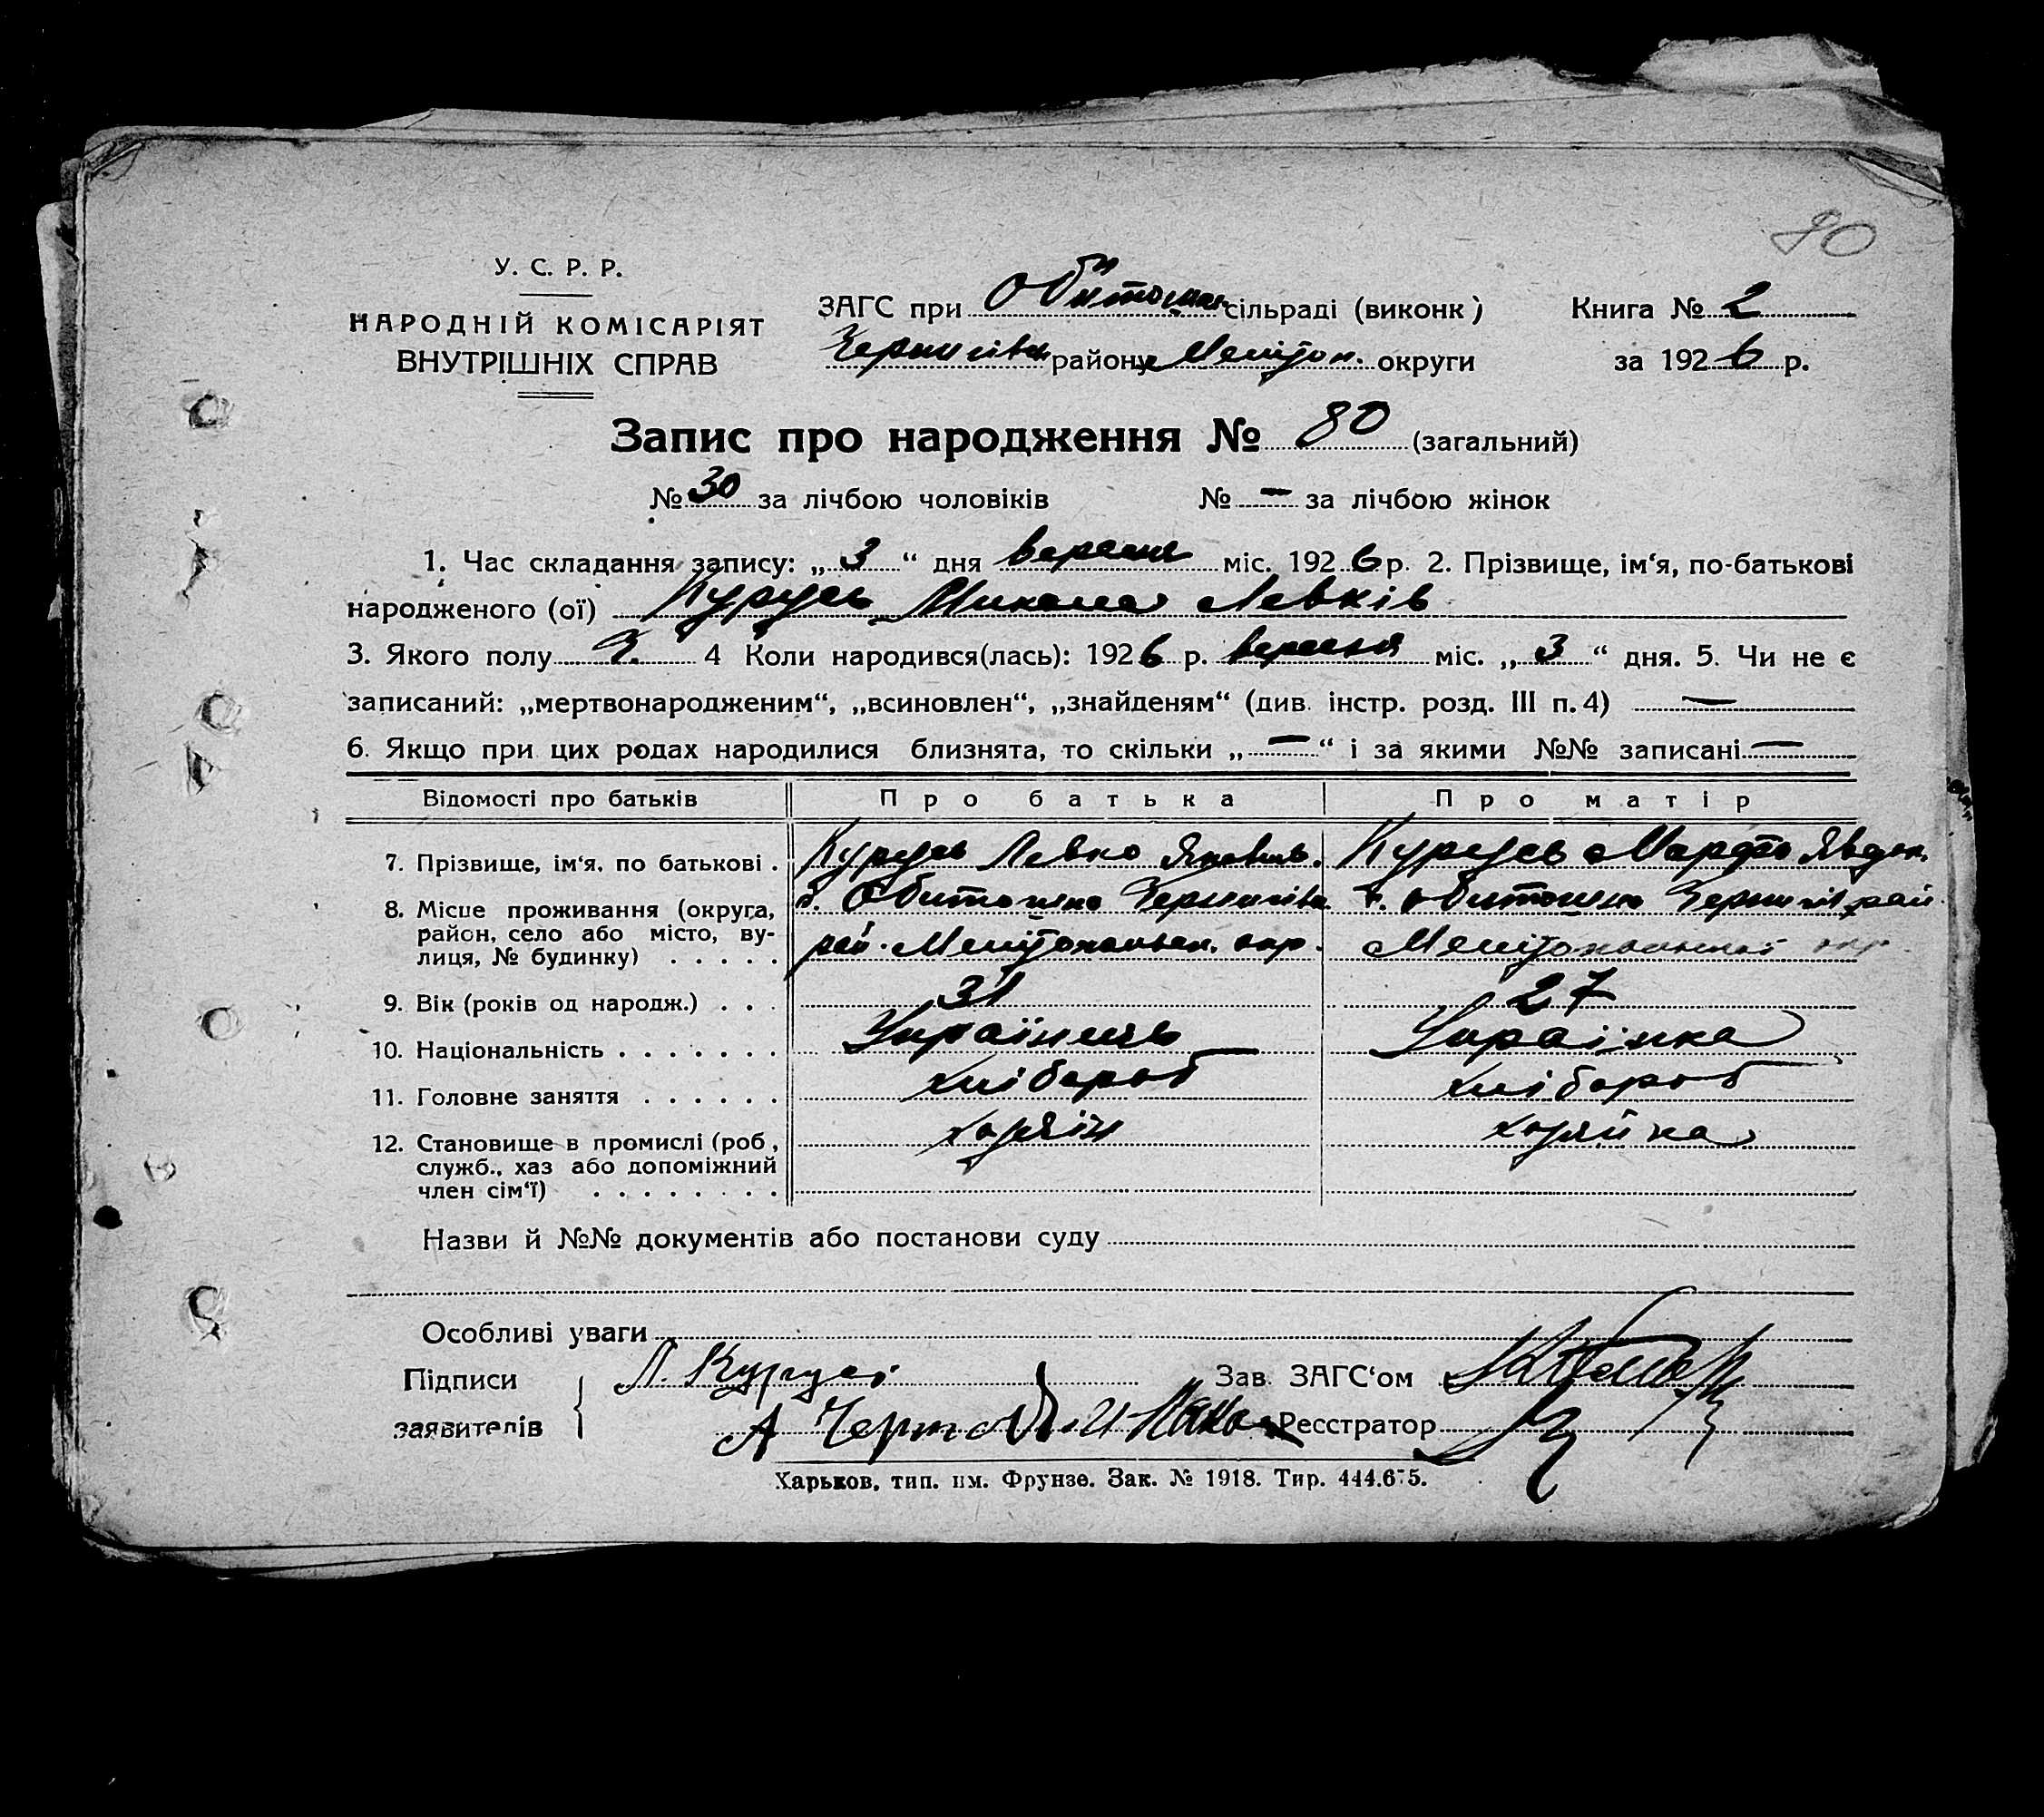 80
У. С. Р. Р.
НАРОДНІЙ КОМІСАРІЯТ
ВНУТРІШНІХ СПРАВ
ЗАГС при Обиточнан сільраді (виконк)
Чернигівськ району Меліт'оп. округи
Книга № 2
за 1926 р.
Запис про народження № 80 (загальний)
№ 30 за лічбою чоловіків № — за лічбою жінок
1. Час складання запису: „ 3 “ дня вересня міс. 1926 р. 2. Прізвище, ім‘я, по-батькові
народженого (ої) Курусь Микола Левків
3. Якого полу Ч. 4 Коли народився(лась): 1926 р. вересня міс. „ 3 “ дня. 5. Чи не є
записаний: „мертвонародженим“, „всиновлен“, „знайденям“ (див. інстр. розд. III п. 4) —
6. Якщо при цих родах народилися близнята, то скільки „ — “ і за якими №№ записані —
Відомості про батьків Про батька Про матір
7. Прізвище, ім‘я, по батькові . Курусь Левко Яковив. Курусь Марфа Явдок.
8. Місце проживання (округа, район, село або місто, вулиця, № будинку) . . . . . с. Обиточна Чернигівськ. рай. Мелітопольск. окр. с. Обиточна Чернигів рай Мелітопольської окр.
9. Вік (років од народж.) . . . 31 27
10. Національність . . . . . . . Українець Українка
11. Головне заняття . . . . . . хлібороб хлібороб
12. Становище в промислі (роб., служб., хаз або допоміжний член сім‘ї) . . . . . . . . хозяїн хозяйка
Назви й №№ документів або постанови суду
Особливі уваги
Підписи заявителів Л. Курусь
Зав. ЗАГС‘ом
Реєстратор
Харьков, тип. им. Фрунзе. Зак. № 1918. Тир. 444.675.